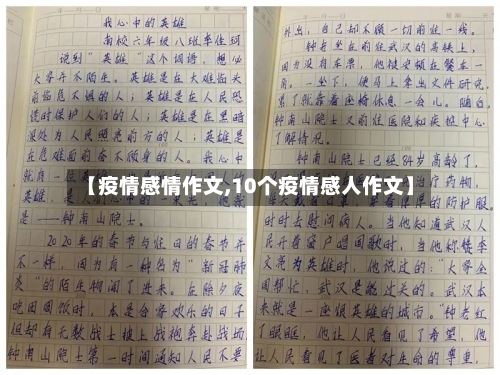 我心中的英雄
南校六年级八班李佳珂
说到“英雄”这个词语,想必
大家并不陌生。英雄是在大难临头
前临危不惧的人;英雄是在人民恐
慌时保护人们的人;英雄是在黑暗
深处为人民照亮前方的人;英雄是
在危难面前奋不顾身的人。我心中
就
英雄,
是——钟南山院士。
2020年的春节与往日的春节并
不一样,因为有一种名为“新冠肺
炎”的陌生物闯了进来。在除夕夜
吃团圆饭时,本是合家欢乐的日子
但却有无数战士披上战袍奔赴战场
钟南山院士第一时间通知人民不要
外出,自己却不顾一切前往一线。
钟老坐在前往武汉的高铁上,
因为没有车票,他被安顿在餐车一
角。一坐下,便马上拿出文件研究,
累了就靠着座椅休息一会儿。随后,
钟南山院士又前往医院和疾控中心
了解情况。
钟南山院士已经84岁高龄了,
疗药物,
的防护服
时时去慰问病人。当他知道武汉人
民开着窗户唱国歌时,当他称矮李
文亮为英雄时,他说过的:“大家全
国帮忙,武汉是能过关的。武汉本
来就是一座很英雄的城市。”钟老红
了眼眶,他让人民看见了希望,他
让人民看见了医者对生命的尊重,
【疫情感情作文,10个疫情感人作文】